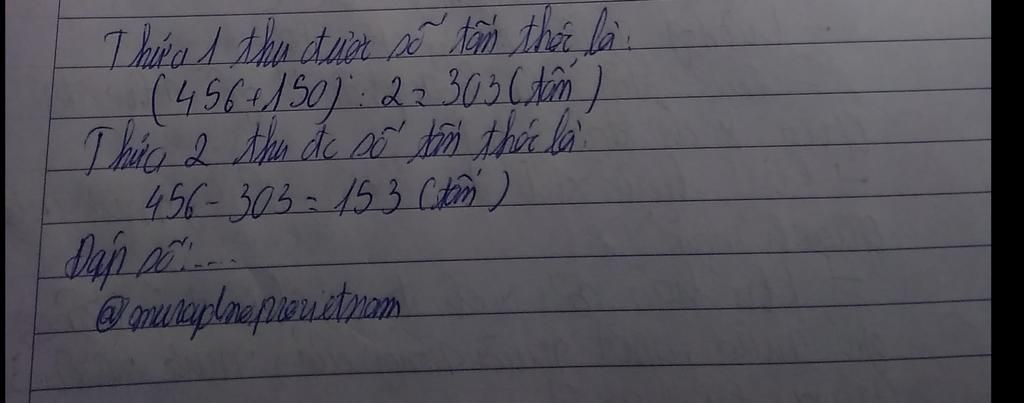 Thửa 1 thu được số tấn thóc là:
(456+150) : 2 = 303 (tấn)
Thửa 2 thu đc số tấn thóc là:
456 - 303 = 153 (tấn)
Đáp số:....